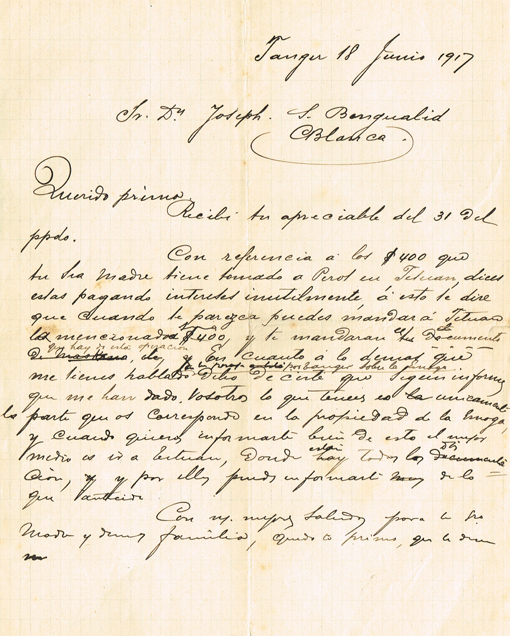 Tanger 18 Junio 1917
Sr. Dn Joseph. S. Benqualid
CBlanca.
Querido primo
Recibi tu apreciable del 31 del
ppdo.
Con referencia á los $400 que
tu Sra Madre tiene tomado a Perol en Tetuan, dices
estas pagando intereses inutilmente, á esto te dire
que cuando te parezca puedes mandar á Tetuan
los mencionados $400, y te mandaran el documento
que hay de esta
de y En cuanto á lo demas que
me tienes hablado Debo decirte que segun informe
que me han dado. Vosotros lo que teneis es la unicamente
la parte que os corresponde en la propiedad de la
y cuando quieras informarte bien de esto el mejor
medio es ir a Tetuan, Donde están todos los
cion, y y por ellos puedes informarte de lo
que
Con mis mejores Saludos para tu Sra
Madre y demas familia, quedo tu primo, que te